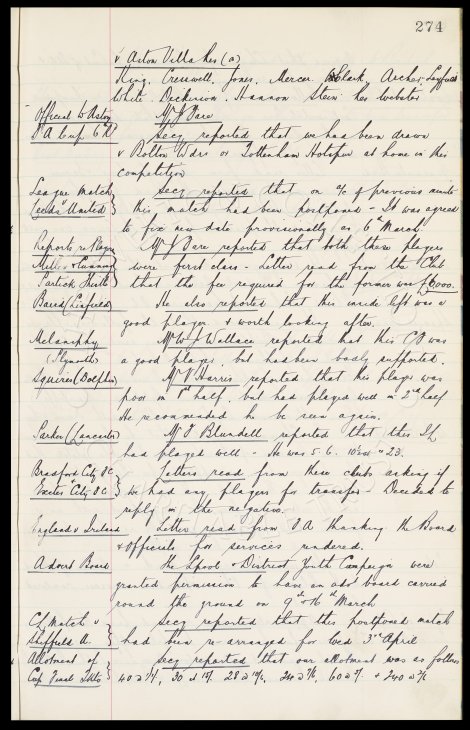 274
v Aston Villa Res (a)
King, Cresswell, Jones, Mercer Clark, Archer, Leyfield
White, Dickinson, Hannon Stein Res Webster
Official to Aston Mr J Dare
F A Cup 6th R Secy reported that we had been drawn
v Bolton Wdrs or Tottenham Hotspur at home in this
competition
League Match Secy reported that on a/c of previous minute
Leeds United this match had been postponed - It was agreed
to fix new date provisionally as 6th March.
Reports re Players Mr J Dare reported that both these players
Mills & were first class - Letter read from the Club
Partick Thistle that the fee required for the former was £8,000.
Baird (Linfield) He also reported that this inside left was a
good player & worth looking after.
Melaniphy Mr W J Wallace reported that this CF was
(Plymouth) a good player but had been badly supported.
Squires (Dolphin) Mr Harris reported that this player was
poor in 1st half, but had played well in 2nd half
He recommended he be seen again.
Parker (Lancaster) Mr T Blundell reported that this
had played well - He was 5.6.
Bradford City FC Letters read from these clubs asking if
Exeter City FC we had any players for transfer - Decided to
reply in the negative.
England v Ireland Letter read from F A thanking the Board
& Officials for services rendered.
Advert Board The Lpool & District Youth Campaign were
granted permission to have an advt board carried
round the ground on 9th & 16th March
Ch Match v Secy reported that this postponed match
Sheffield A. had been re-arranged for Wed 3rd April
Allotment of Secy reported that our allotment was as follows
Cup Final Tkts